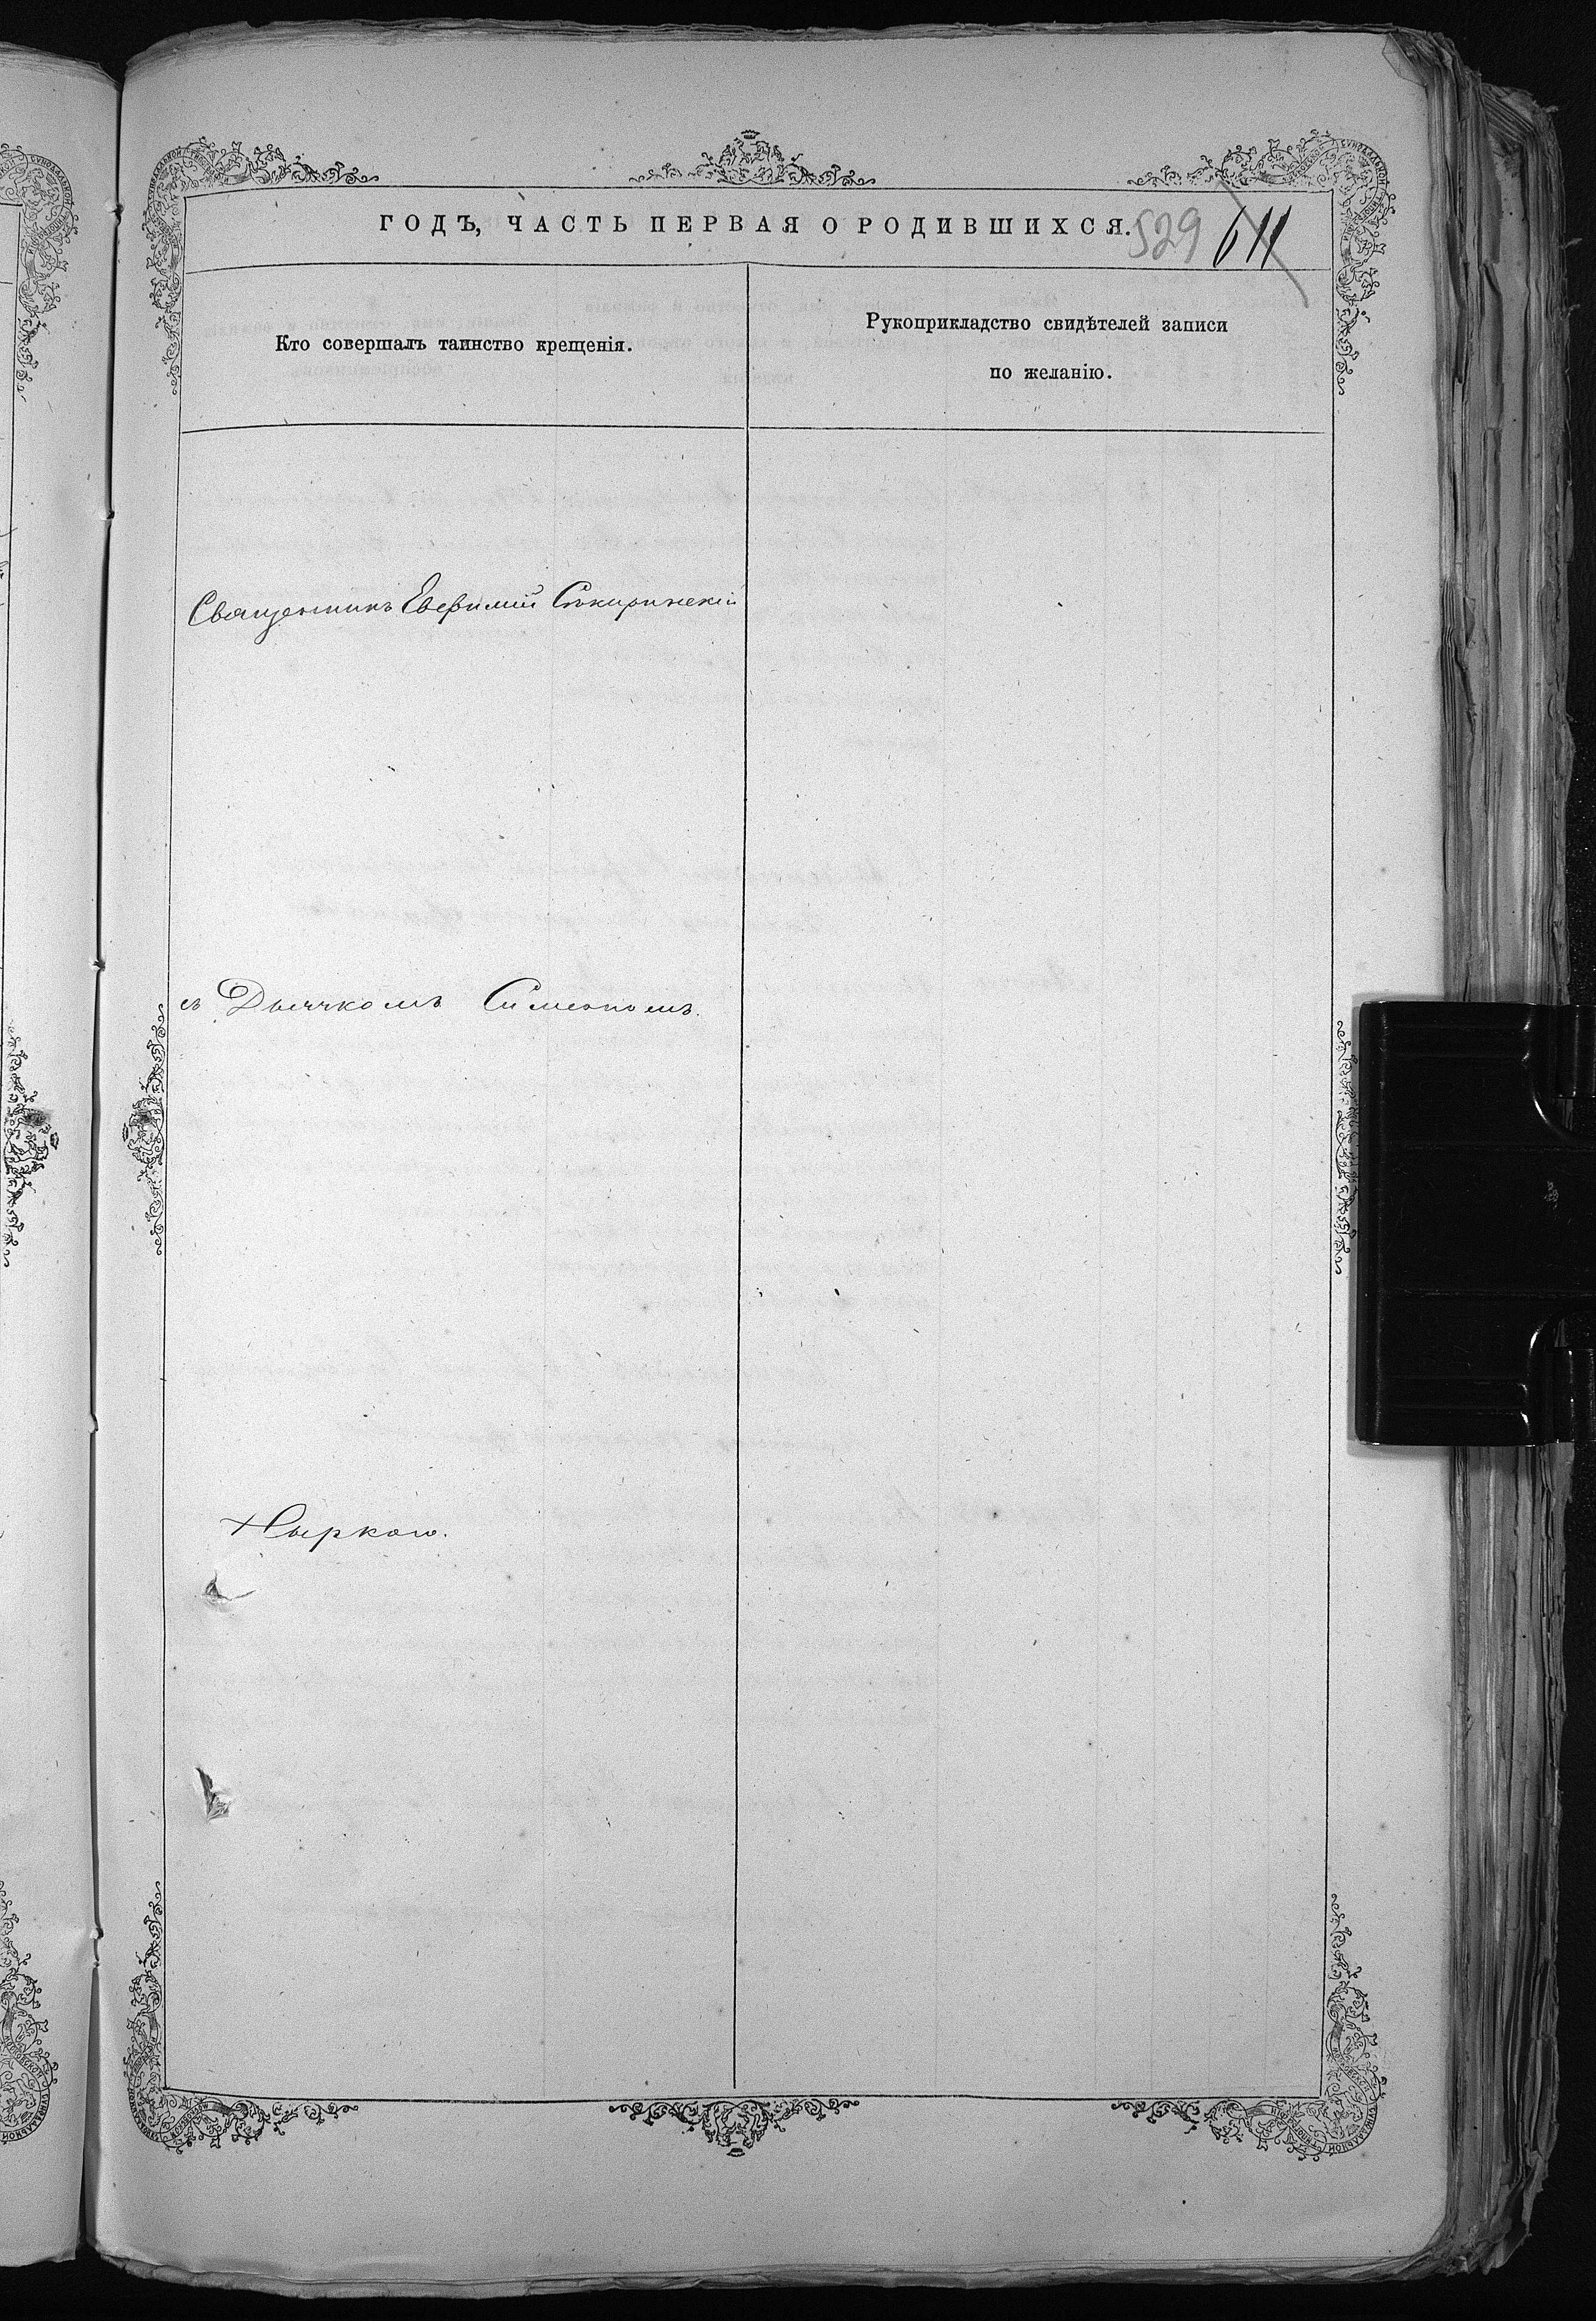 ГОДЪ, ЧАСТЬ ПЕРВАЯ О РОДИВШИХСЯ.
529 611
Кто совершалъ таинство крещенія.
Рукоприкладство свидѣтелей записи
по желанію.
Священникъ Евфимій Сѣкиринскій
съ Дьячкомъ Симеономъ
Нырково.